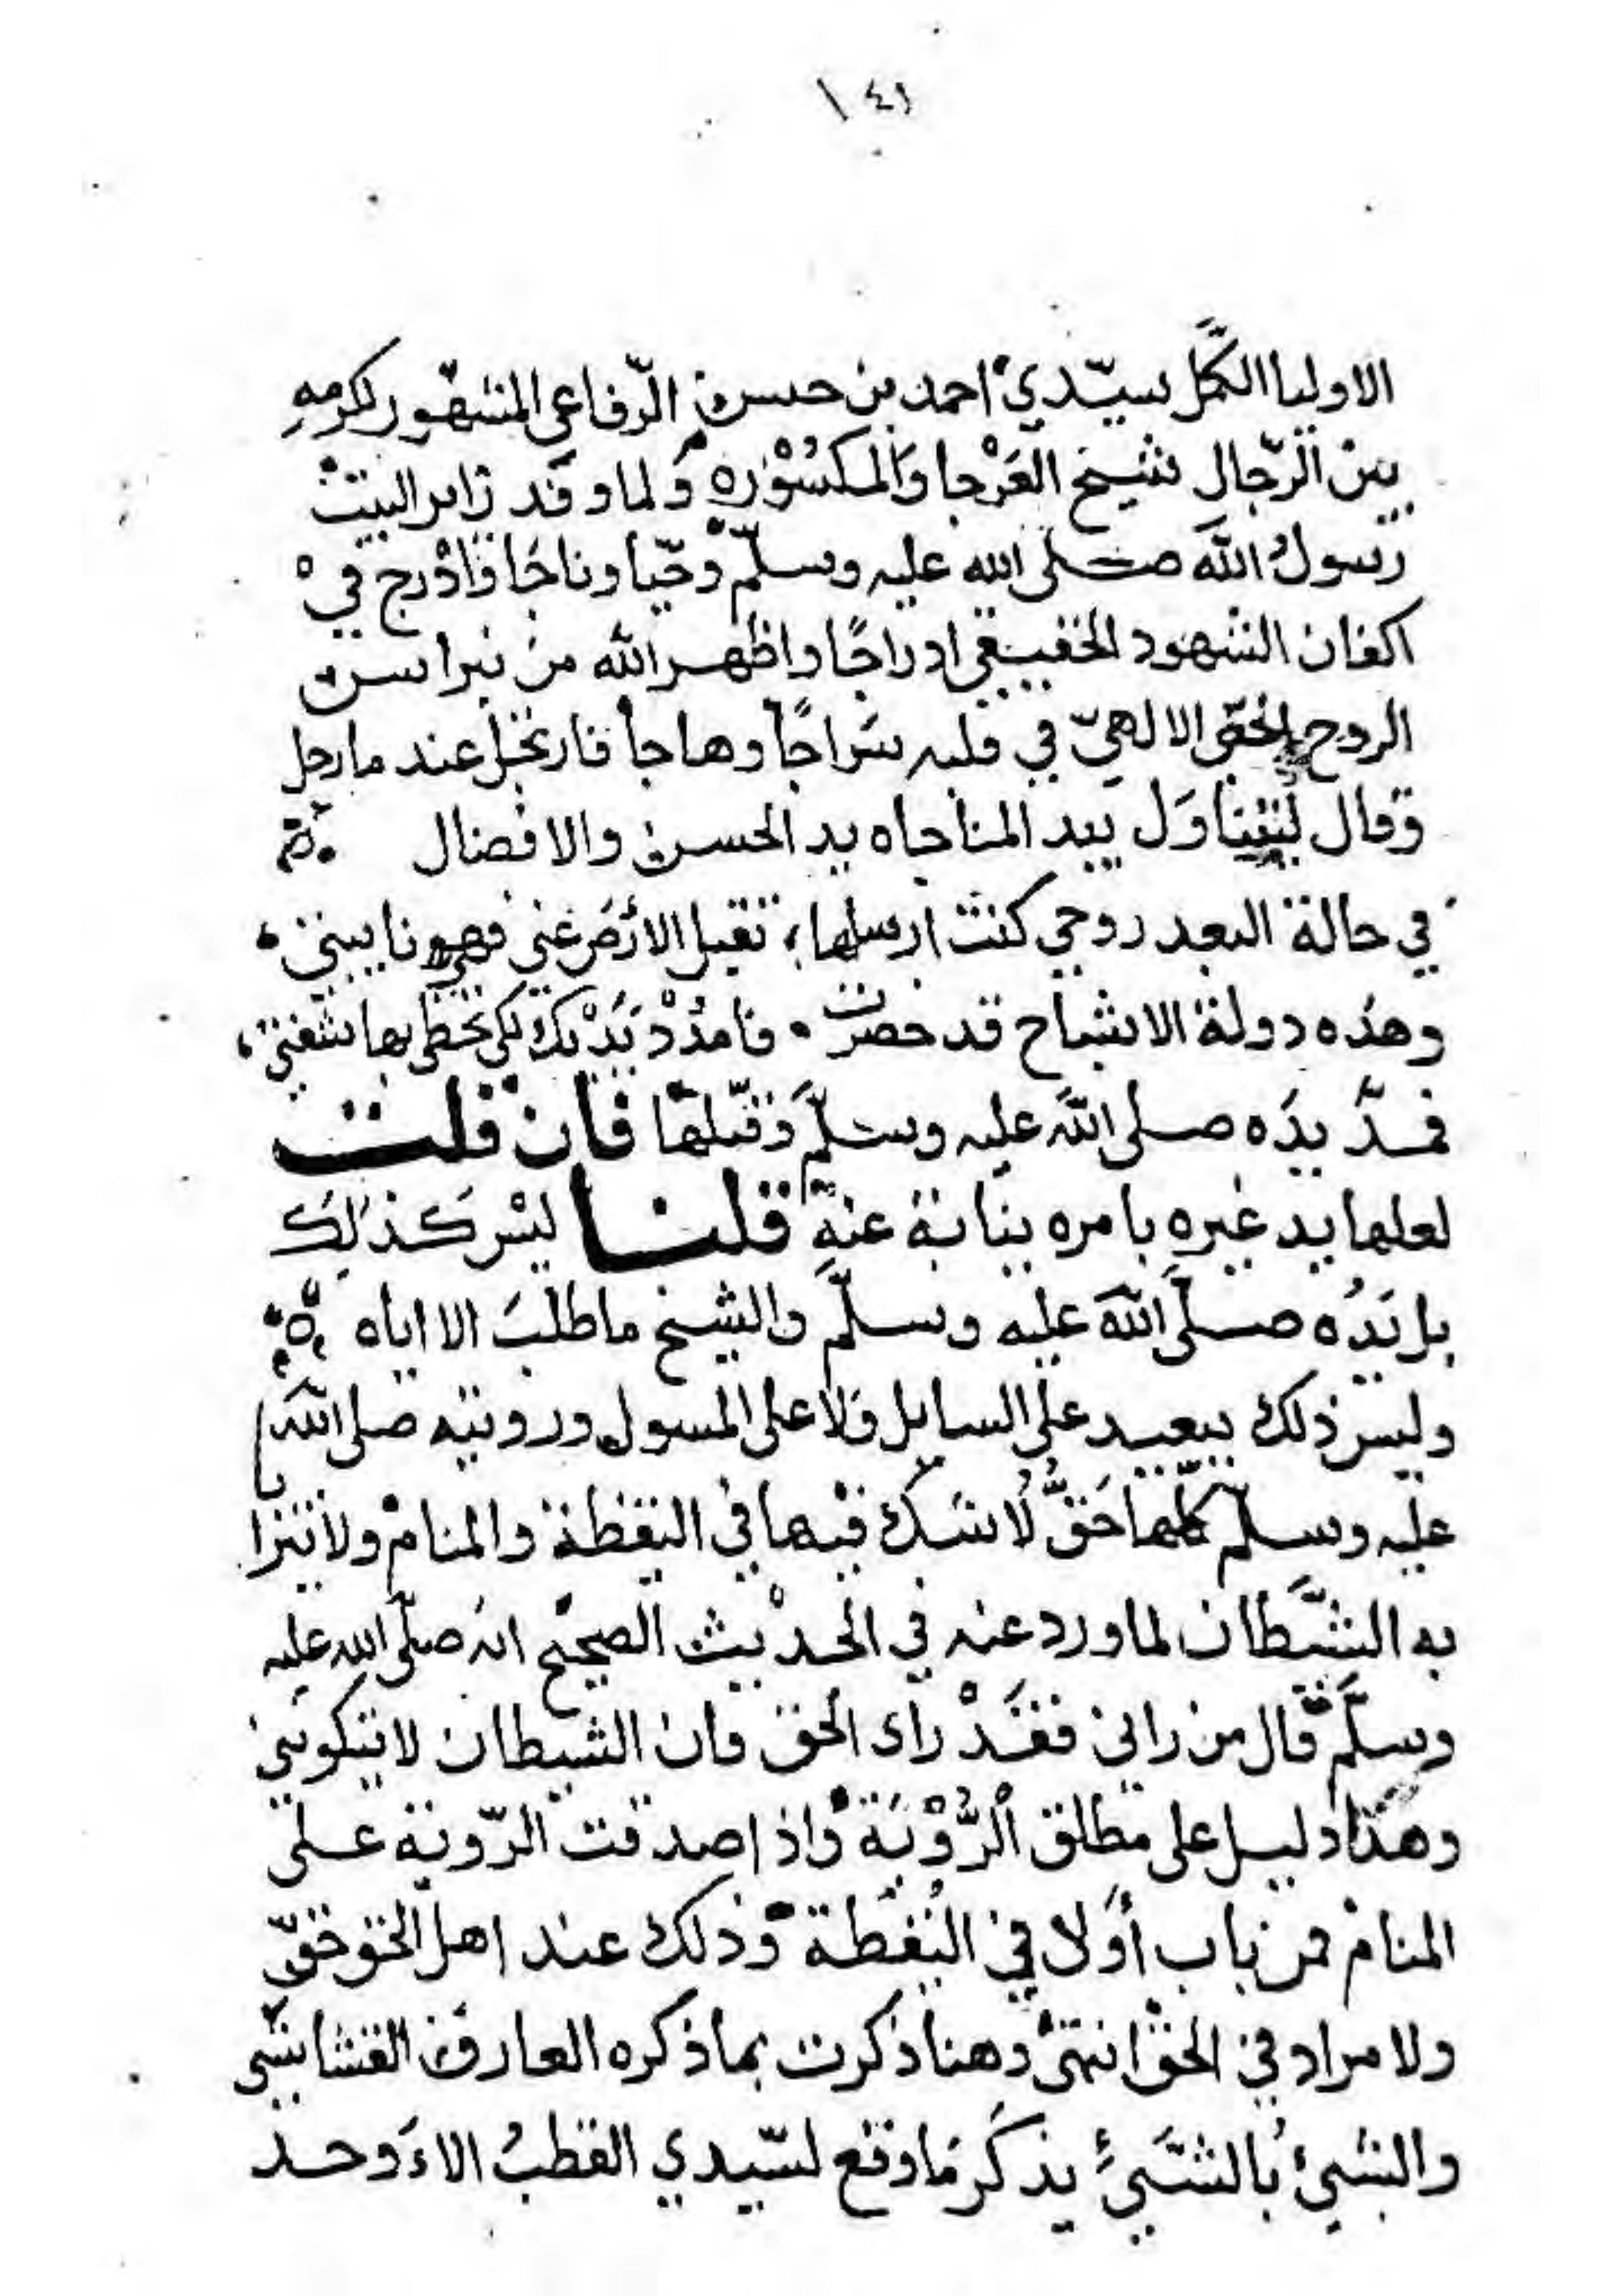 ١٤١
الاوليا الكمَّل سيّدي احمد بن حسن الرّفاعي المشهور لكرمه
بين الرّجال شيخ العَرْجا وَالمكسُوْره وَلما وفد زاير البيت
رسول الله صلى الله عليه وسلّم وحيّا وناجَا وَادْرج في
اكفان الشهود الحقيقي ادراجًا واظهر الله من نبراس
الروح الحقى الالهيّ في قلبه سَراجًا وهاجا فارتحل عند مارحل
وقال ليتناوَل بيد المناجاه يد الحسن والافضال
في حالة البعد روحي كنت ارسلها، تقبل الارَض عَني فهي نايبتي،
وهذه دولة الاشباح قد حضرت . فامدُدْ يَدَيْك لكي تحظى بها شفتي،
فمدَّ يدَه صلى الله عليه وسلّم وَقبّلها فان قلت
لعلها يد غيره بامره بنيابة عنه قلنا ليْس كَذَلِكَ
بل يَدُه صلّى الله عليه وسلّم والشيخ ما طلبَ الا اياه
وليس ذلك ببعيد على السايل وَلا على المسول ورويته صلى الله
عليه وسلم كلّها حَقٌّ لا شك فيْها في اليقظة والمنامْ ولا يتزايا
به الشَّيطان لما ورد عنه في الحديث الصحيح انه صلّى الله عليه
وسلَّم قال من راني فقَدْ راى الحق فان الشيطان لا يتكونني
وهذا دليل على مطلق الرُّوْيَة وَاذا صدقت الرّوية على
المنامْ فمن باب أوَلا في اليُقظة وذلك عند اهل الحق حَقّ
ولا مراد في الحق انتهى وهنا ذكرت بما ذكره العارف القشاشي
والشيُ بالشَيءِ يذكَر مَا وقع لسّيدي القطبُ الاَوحد